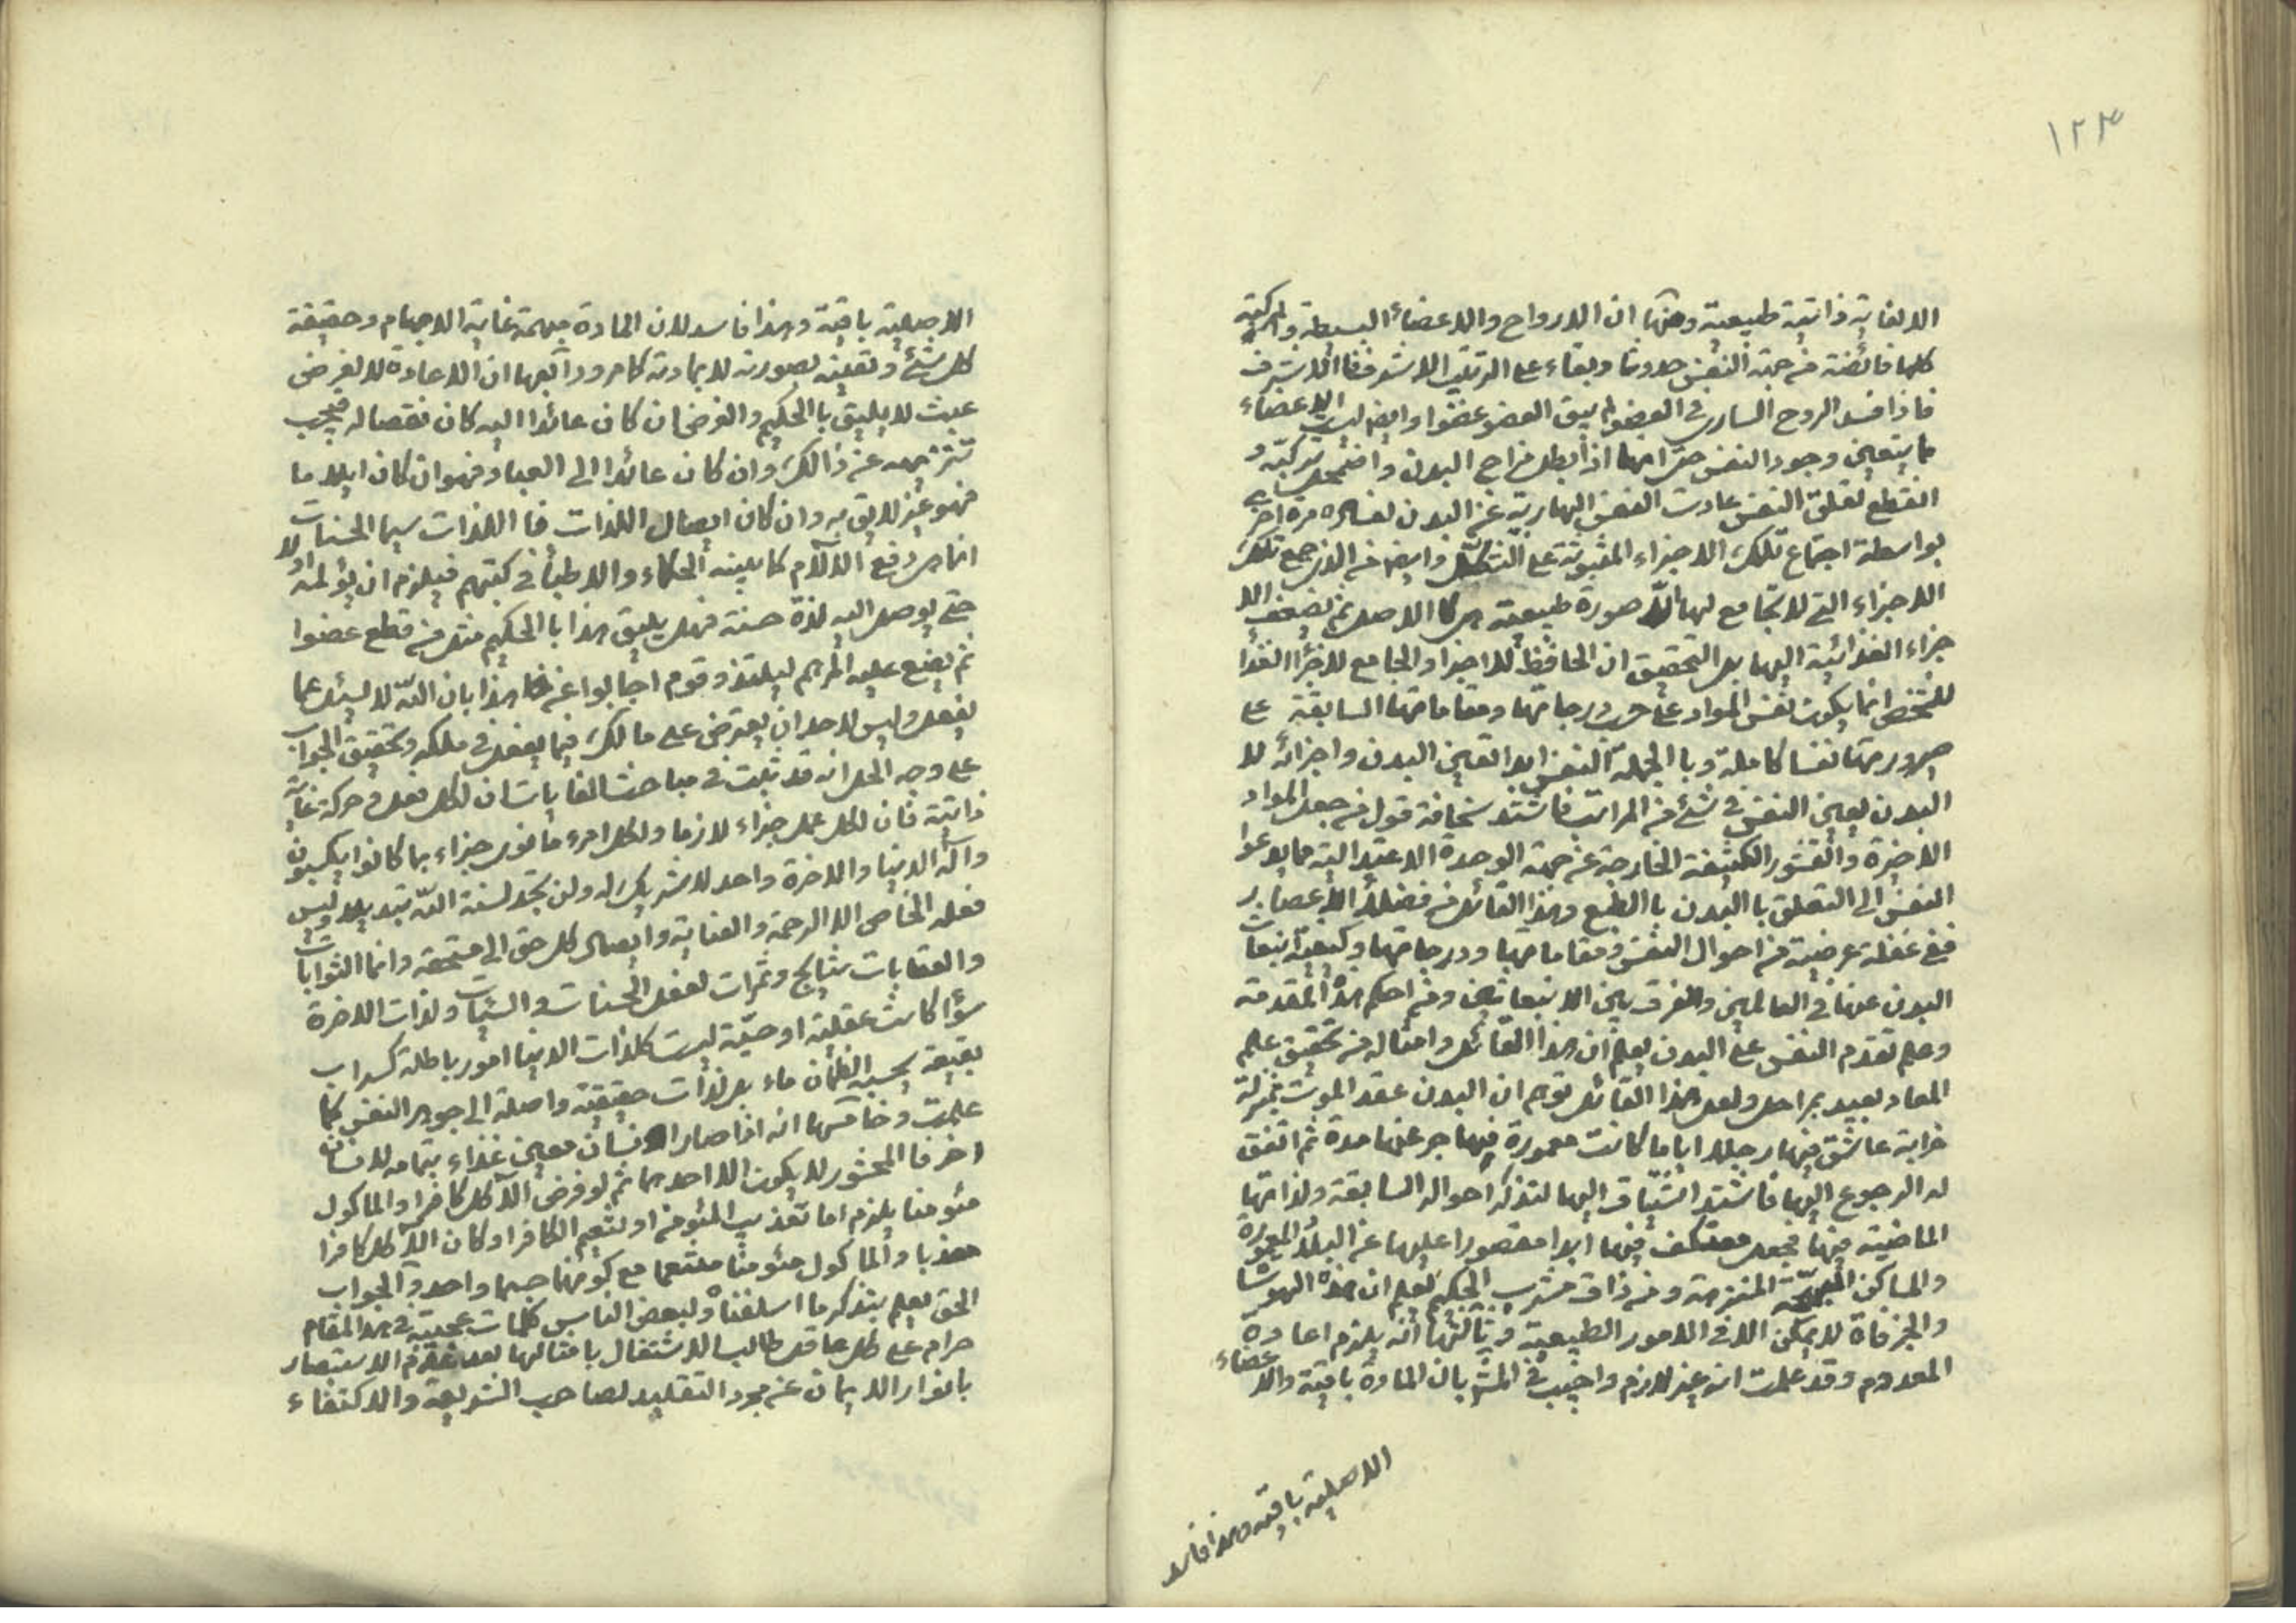 ١٢٣
الالغاية ذاتية طبيعية ومنها ان الارواح والاعضاء البسيطة والمركبة
كلها فائضة من جهة النفس حدوثا وبقاء على الترتيب الاشرف فالاشرف
فاذا فسد الروح السارى فى العضو لم يبق العضو عضوا وايضا ليس الاعضاء
ما يتعين وجود النفس حتى انها اذا بطل مزاج البدن واضمحل تركيبه و
انقطع تعلق النفس عادت النفس الهاربة عن البدن لفساده مرة اخرى
بواسطة اجتماع تلك الاجزاء المثبوتة على التشكل وايضا من الذى جمع تلك
الاجزاء التى لا تجامع لها الا صورة طبيعية هى كالاصل ثم تضيف الا
جزاء الغذائية اليها بل التحقيق ان الحافظ للاجزاء والجامع لاجزاء الغذا
للشخص انما يكون نفس المواد على درجاتها ومقاماتها السابقة على
صيرورتها نفسا كاملة وبالجملة النفس ابدا تعين البدن واجزائه لا
البدن يعين النفس فى شئ من المراتب فاشتد سخافة قول من جعل المواد
الاخيرة والقشور الكثيفة الخارجة عن جهة الوحدة الاعتدالية مما يدعوا
النفس الى التعلق بالبدن بالطبع وهذا القائل من فضلاء الاعصار
ففى غفلة عريضة من احوال النفس ومقاماتها ودرجاتها وكيفية انبعاث
البدن عنها فى العالمين والفرق بين الانبعاثين ومن احكم هذه المقدمة
وعلم تقدم النفس على البدن يعلم ان هذا القائل وامثاله من تحقيق علم
المعاد بعيد بمراحل ولعل هذا القائل توهم ان البدن عقد الموت بمنزلة
خرابة عاش فيها رجلا اياما كانت معمورة فيهاجر عنها مدة ثم اتفق
له الرجوع اليها فاشتد اشتياق اليها لتذكر احواله السابقة ولذاتها
الماضية فيها فجعل معتكف فيها ابدا مقصورا عليها عن البلاد المعمورة
والمساكن المنزهة ومن ذاق مشرب الحكيم يعلم ان هذه الهوسا
والجزفاة لا يمكن الا فى الامور الطبيعية وثالثها انه يلزم اعادة
المعدوم وقد علمت انه غير لازم واجيب فى المش بان المادة باقية والاعضاء
الاصلية باقية وهذا فاسد
الاصلية باقية وهذا فاسد لان المادة مبهمة غاية الابهام وحقيقة
كل شئ وتعينه بصورته لا بمادته كما مر ورابعها ان الاعادة لا لغرض
عبث لا يليق بالحكيم والغرض ان كان عائدا اليه كان نقصا له فيجب
تنزيهه عن ذالك وان كان عائدا الى العباد فهو ان كان ايلاما
فهو غير لايق به وان كان ايصال اللذات فا اللذات سيما الحسيات
انما هى دفع الآلام كما بينه الحكماء والاطبا فى كتبهم فيلزم ان يؤلمه اولا
حتى يوصل اليه لذة حسنة فهل يليق هذا بالحكيم مثل من قطع عضوا
ثم يضع عليه المراهم ليلتذ وقوم اجابوا عن هذا بان الله لا يسئل عما
يفعل وليس لاحد ان يعترض على مالك فيما يفعل فى ملكه وتحقيق الجواب
على وجه الحل انه قد ثبت فى مباحث الغايات ان لكل فعل وحركة غاية
ذاتية فان لكل عمل جزاء لازما ولكل امرء ما نوى جزاء بما كانوا يكسبون
واله الدنيا والاخرة واحد لا شريك له ولن تجد لسنة الله تبديلا وليس
فعله الخاص الا الرحمة والعناية وايصال كل حق الى مستحقه وانما الثوابات
والعقابات نتايج وثمرات لفعل الحسنات والسيئات ولذات الاخرة
سواء كانت عقلية او حسية ليست كلذات الدنيا امور باطلة كسراب
بقيعة يحسبه الظمأن ماء بل لذات حقيقية واصلة الى جوهر النفس كما
علمت وخامسها انه اذا صار الانسان معين غذاء بتمامه لانسان
اخر فا المحشور لا يكون الا احدهما ثم لو فرض الآكل كافرا والماكول
مئومنا يلزم اما تعذيب المئومن او تنعيم الكافر او كان الآكل كافرا
معذبا والماكول مئومنا متنعما مع كونهما جسما واحد والجواب
الحق يعلم بتذكر ما اسلفناه ولبعض الناس كلمات عجيبة فى هذا المقام
حرام على كل عاقل طالب الاشتغال بامثالها بعد عدم الاستبصار
بانوار الايمان عن مجرد التقليد لصاحب الشريعة والاكتفاء